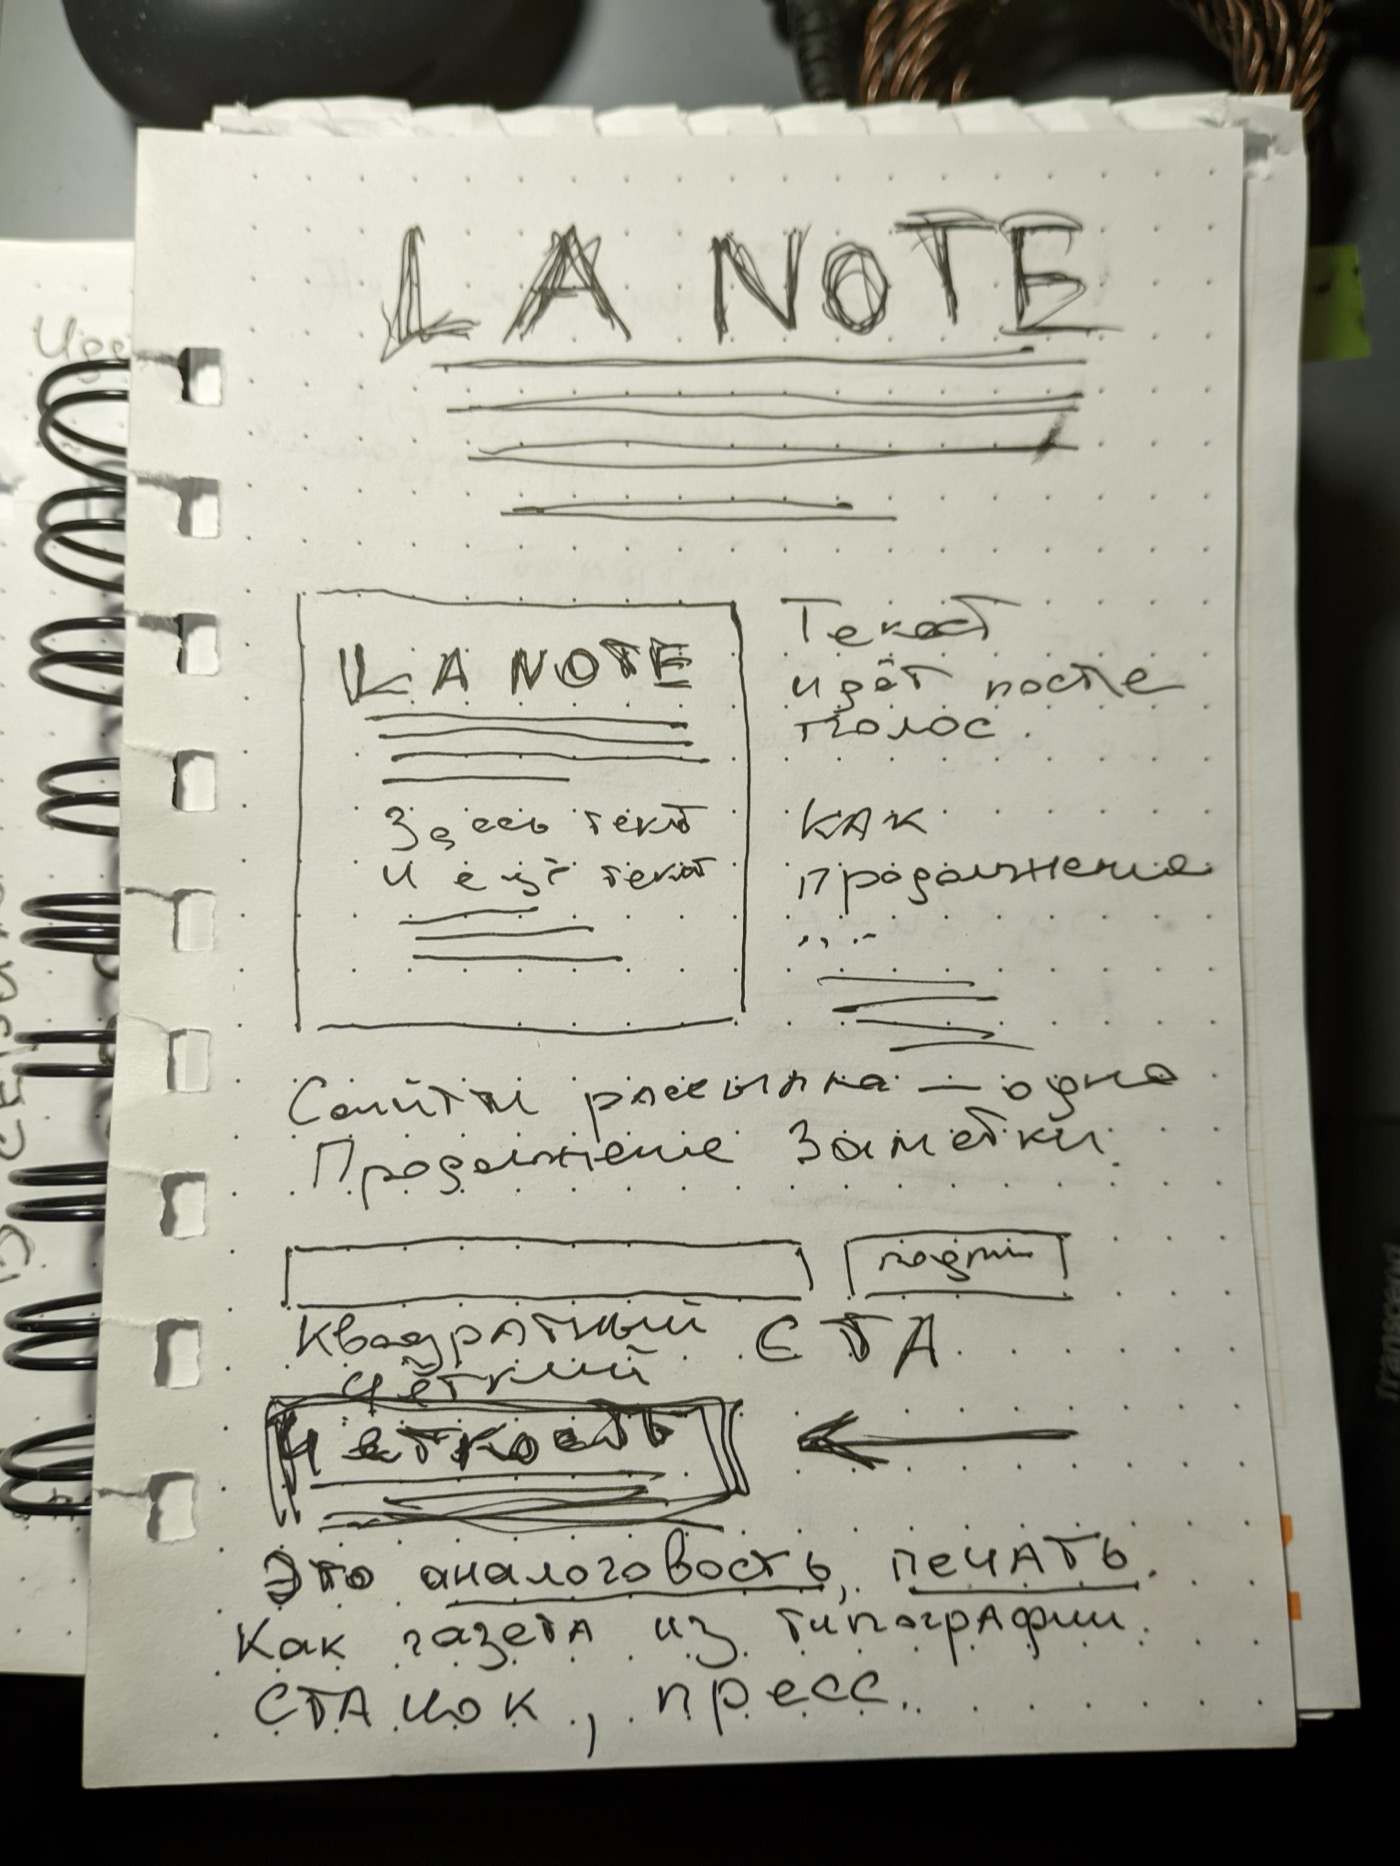 LA NOTE
LA NOTE
Здесь текст
и ещё текст
Текст
идёт после
полос.
как
продолжение
...
Сайт и рассылка — одно
Продолжение Заметки.
подпис
Квадратный СТА
Чёткий
Чёткость
Это аналоговость, печать.
Как газета из типографии.
Станок, пресс.
transcend